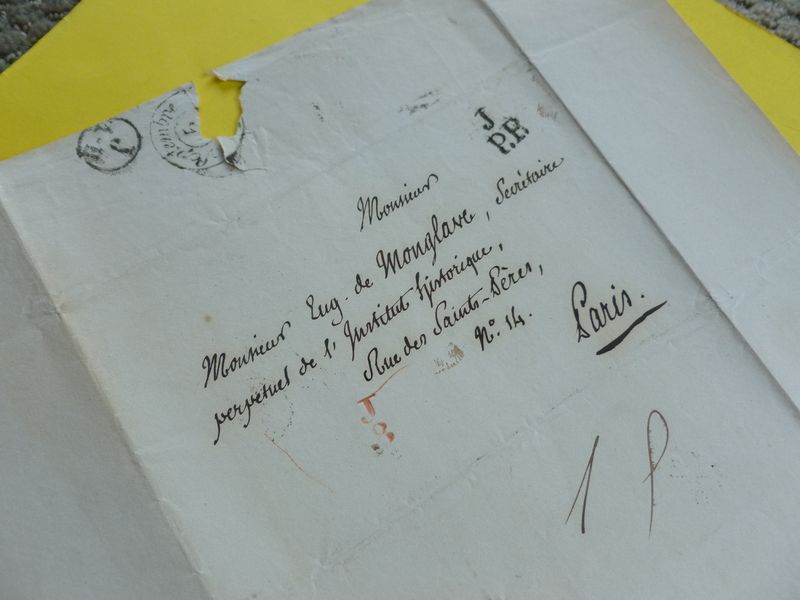 J
P.P.
Monsieur
Monsieur Eug. de Monglave, Secrétaire
perpetuel de l'Institut historique,
Rue des Saints-Pères,
N.º 14.
Paris.
J
8